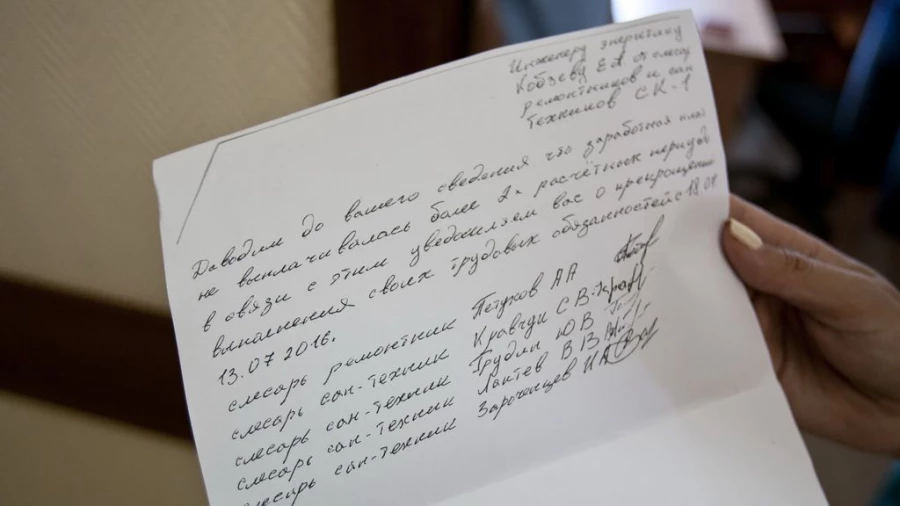 Инженеру энергетику
Кобзеву ЕА от слесар
ремонтников и сан
техников СК-1
Доводим до вашего сведения что заработная плат
не выплачивалась более 2х расчётных периодо
в связи с этим уведомляем вас о прекращении
выполнения своих трудовых обязанностей с 18.07
13.07 2016.
слесарь ремонтник Петухов АА
слесарь сан-техник Кравчук С В
слесарь сан-техник Грудин Ю В
слесарь сан-техник Лаптев В В
слесарь сан-техник Зароченцев И А